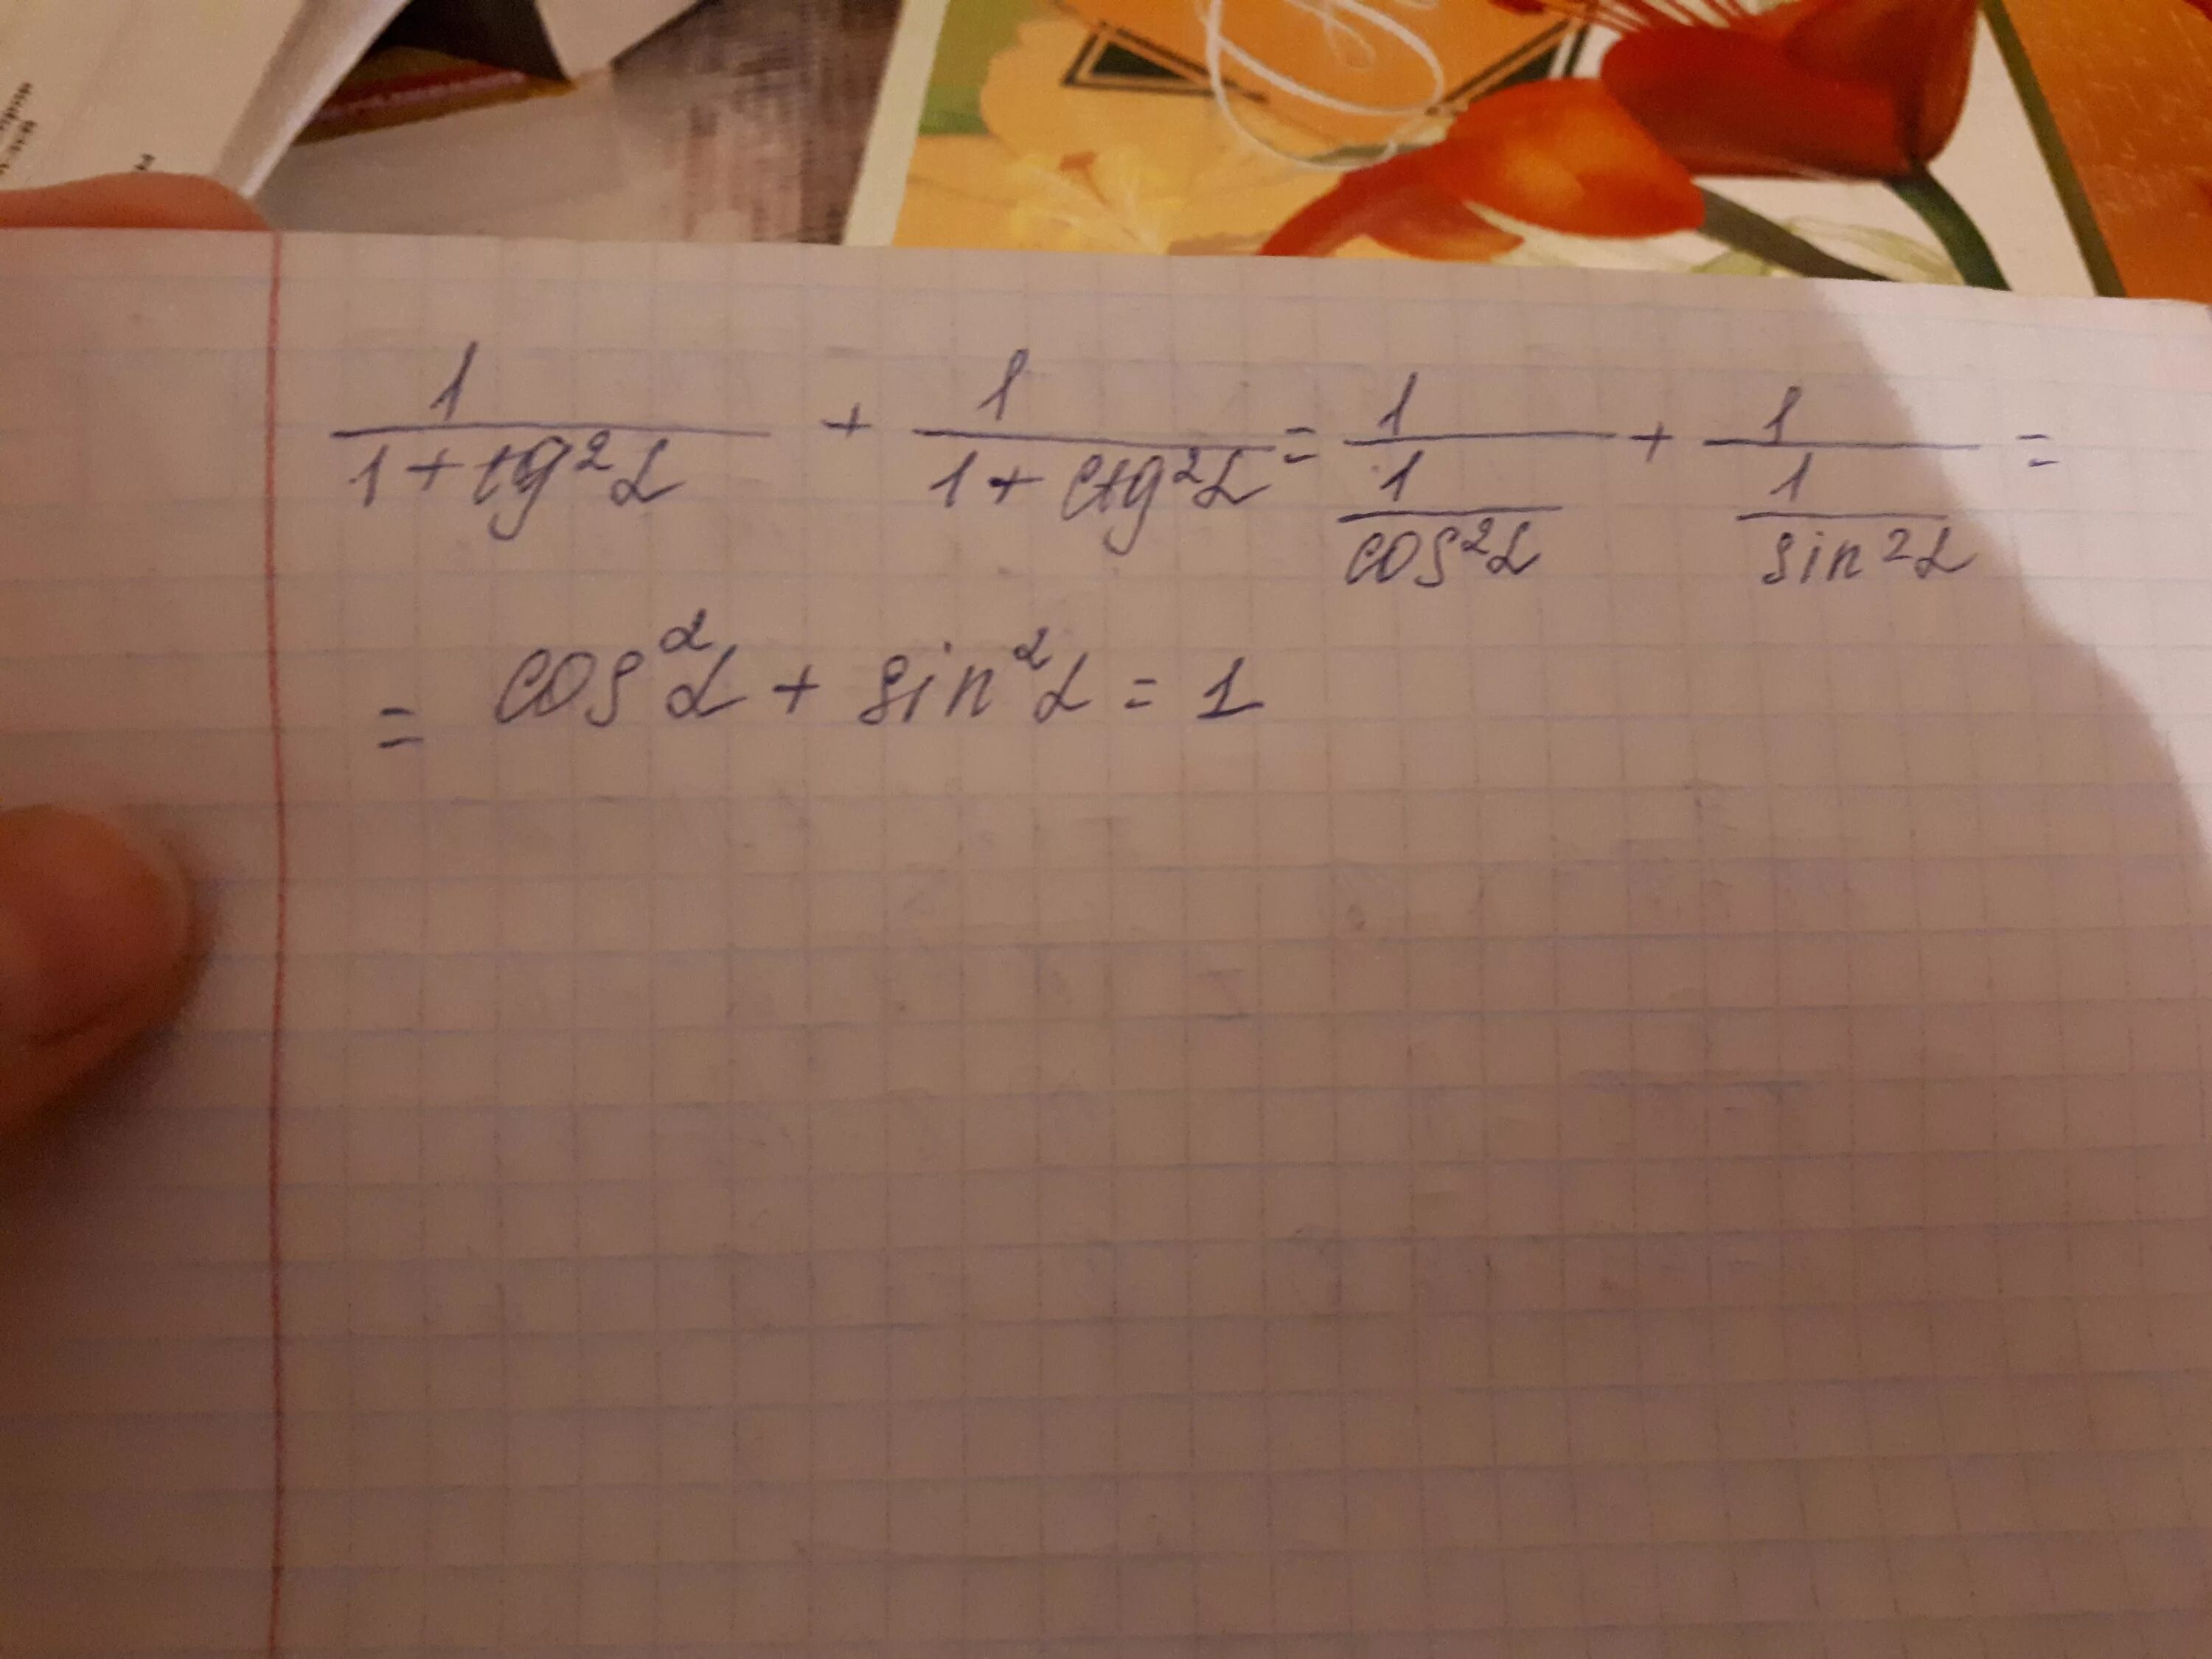 1/(1+tg²α) + 1/(1+ctg²α) = 1/(1/cos²α) + 1/(1/sin²α) =
= cos²α + sin²α = 1